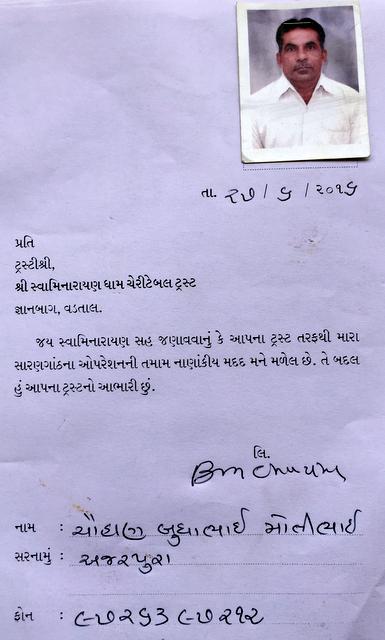 તા. ૨૭ / ૬ / ૨૦૧૬
પ્રતિ
ટ્રસ્ટીશ્રી,
શ્રી સ્વામિનારાયણ ધામ ચેરીટેબલ ટ્રસ્ટ
જ્ઞાનબાગ, વડતાલ.
જય સ્વામિનારાયણ સહ જણાવવાનું કે આપના ટ્રસ્ટ તરફથી મારા
સારણગાંઠના ઓપરેશનની તમામ નાણાંકીય મદદ મને મળેલ છે. તે બદલ
હું આપના ટ્રસ્ટનો આભારી છું.
લિ.
નામ : ચૌહાણ બુધાભાઈ મોતીભાઈ
સરનામું : અજરપુરા
ફોન : ૯૭૨૬૩૯૭૨૧૨